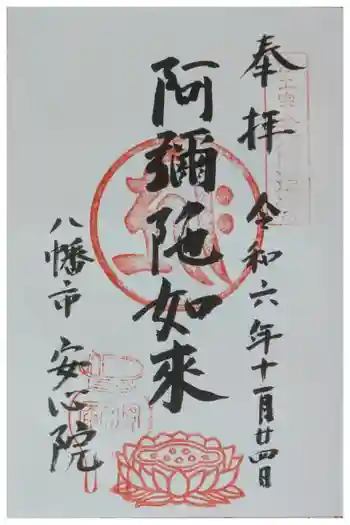 奉拝
令和六年十一月廿四日
阿彌陀如來
八幡市
安心院